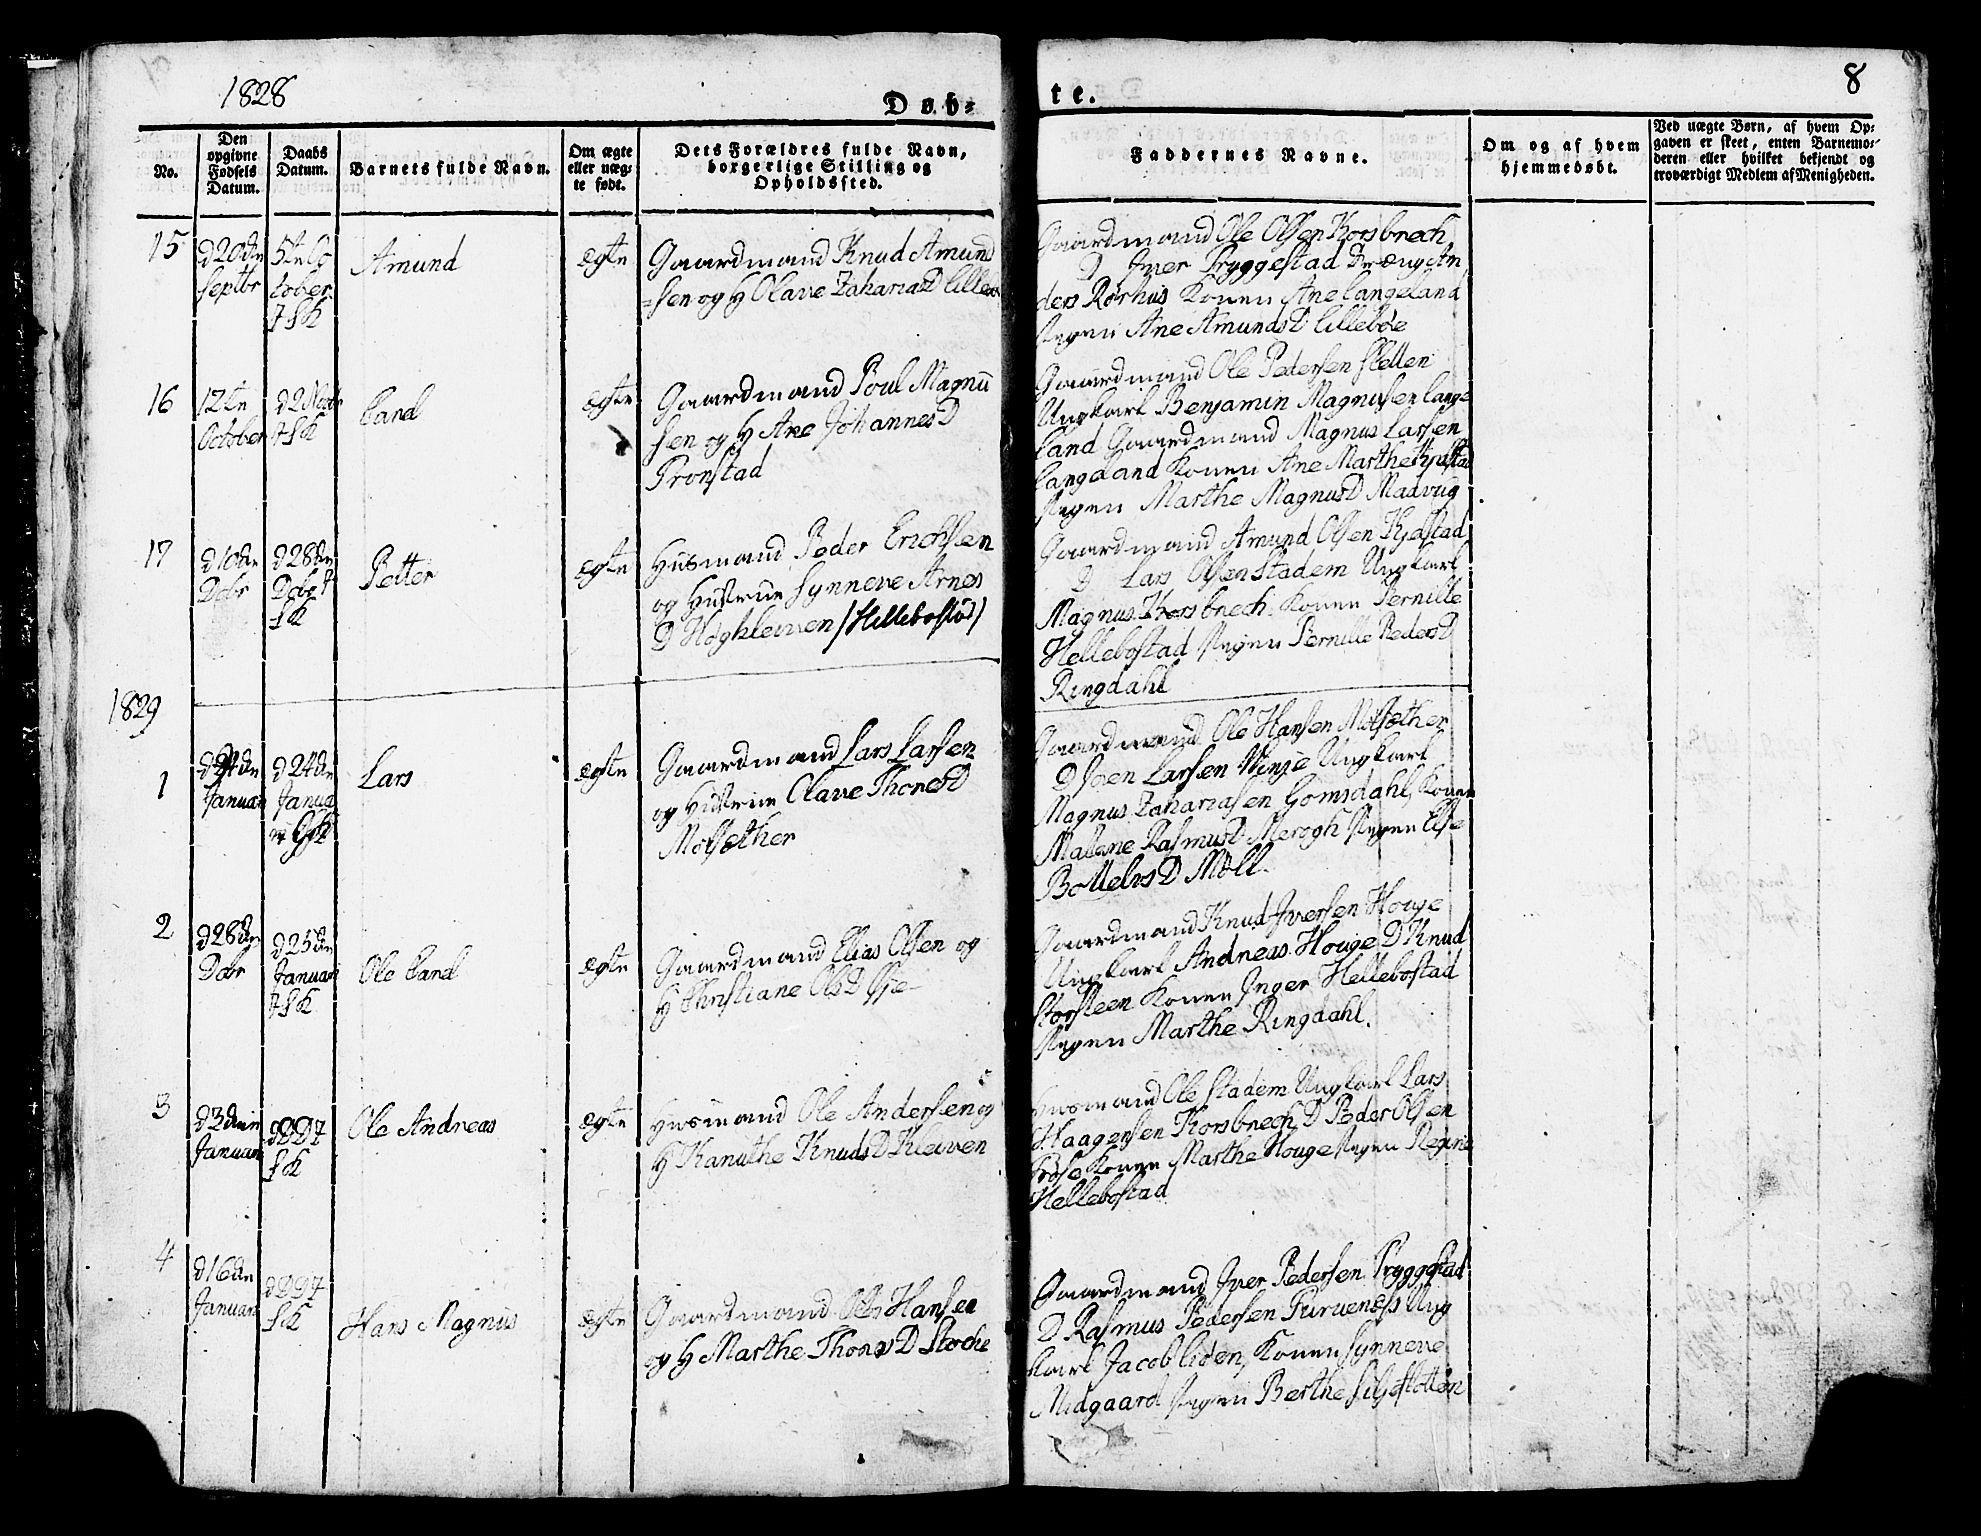 1828
Døb-
te.
8
No.
Den
opgivne
Fødsels
Datum.
Daabs
Datum.
Barnets fulde Navn.
Om ægte
eller uæg-
te født.
Dets Forældres fulde Navn,
borgerlige Stilling og
Opholdssted.
Faddernes Navne.
Om og af hvem
hjemmedøbt.
Ved uægte Børn, af hvem Op-
gaven er skeet, enten Barnemo-
deren eller hvilket bekjendt og
troværdigt Medlem af Menigheden.
15
d 20de
Septbr
5te Oc
tober
Amund
ægte
Gaardmand Knud Amund
=sen og H Olave Zacharias D Lillebøe
Gaardmand Ole Olsen Korsbrech
D Iver Tryggestad Dræng An
ders Rørhus Konen Ane Langeland
Pigen Ane Amunds D Lillebøe
16
12te
October
Carl
ægte
Gaardmand Poul Magnu
sen og H Ane Johannes D
Tronstad
Gaardmand Ole Pedersen
Ungkarl Benjamin Magnusen Lange
land Gaardmand Magnus Larsen
Langeland Konen Ane Marthe
Pigen Marthe Magnus D
17
Petter
ægte
Huusmand Peder Erichsen
og Hustrue Synneve Arnes
D Høgkleiven /Hellebostad/
Gaardmand Amund Olsen
D Lars Olsen Stadem Ungkarl
Magnus Korsbrech Konen Pernille
Hellebostad Pigen Pernille Peders D
Ringdahl
1829
1
d 24de
Januar
Lars
ægte
Gaardmand Lars Larsen
og Hustrue Olave Thores D
Molsæther
Gaardmand Ole Hansen Molsæther
D Joen Larsen Vinje Ungkarl
Magnus Zachariasen Gomsdahl, Konen
Malene Rasmus D Merogh Pigen Else
Bottelvs D Möll.
2
d 28de
Dcbr
d 25de
Januari
Ole Carl
ægte
Gaardmand Elias Olsen og
H Christiane Ols D
Gaardmand Knud Iversen Houge
Ungkarl Andreas Houge D Knud
Storsteen Konen Inger Hellebostad
Pigen Marthe Ringdahl.
3
Januari
Ole Andreas
ægte
Huusmand Ole Andersen og
H Kanuthe Knuds D Kleiven
Huusmand Ole Stadem Ungkarl Lars
Haagensen Korsbrech, D Peder Olsen
Konen Marthe Houge Pigen
Hellebostad
4
d 16de
Januar
Hans Magnus
ægte
Gaardmand Ole Hansen
og H Marthe Thores D Storche
Gaardmand Iver Pedersen Tryggestad
D Rasmus Pedersen Ung
karl Jacob Liden, Konen Synneve
Midgaard Pigen Berthe